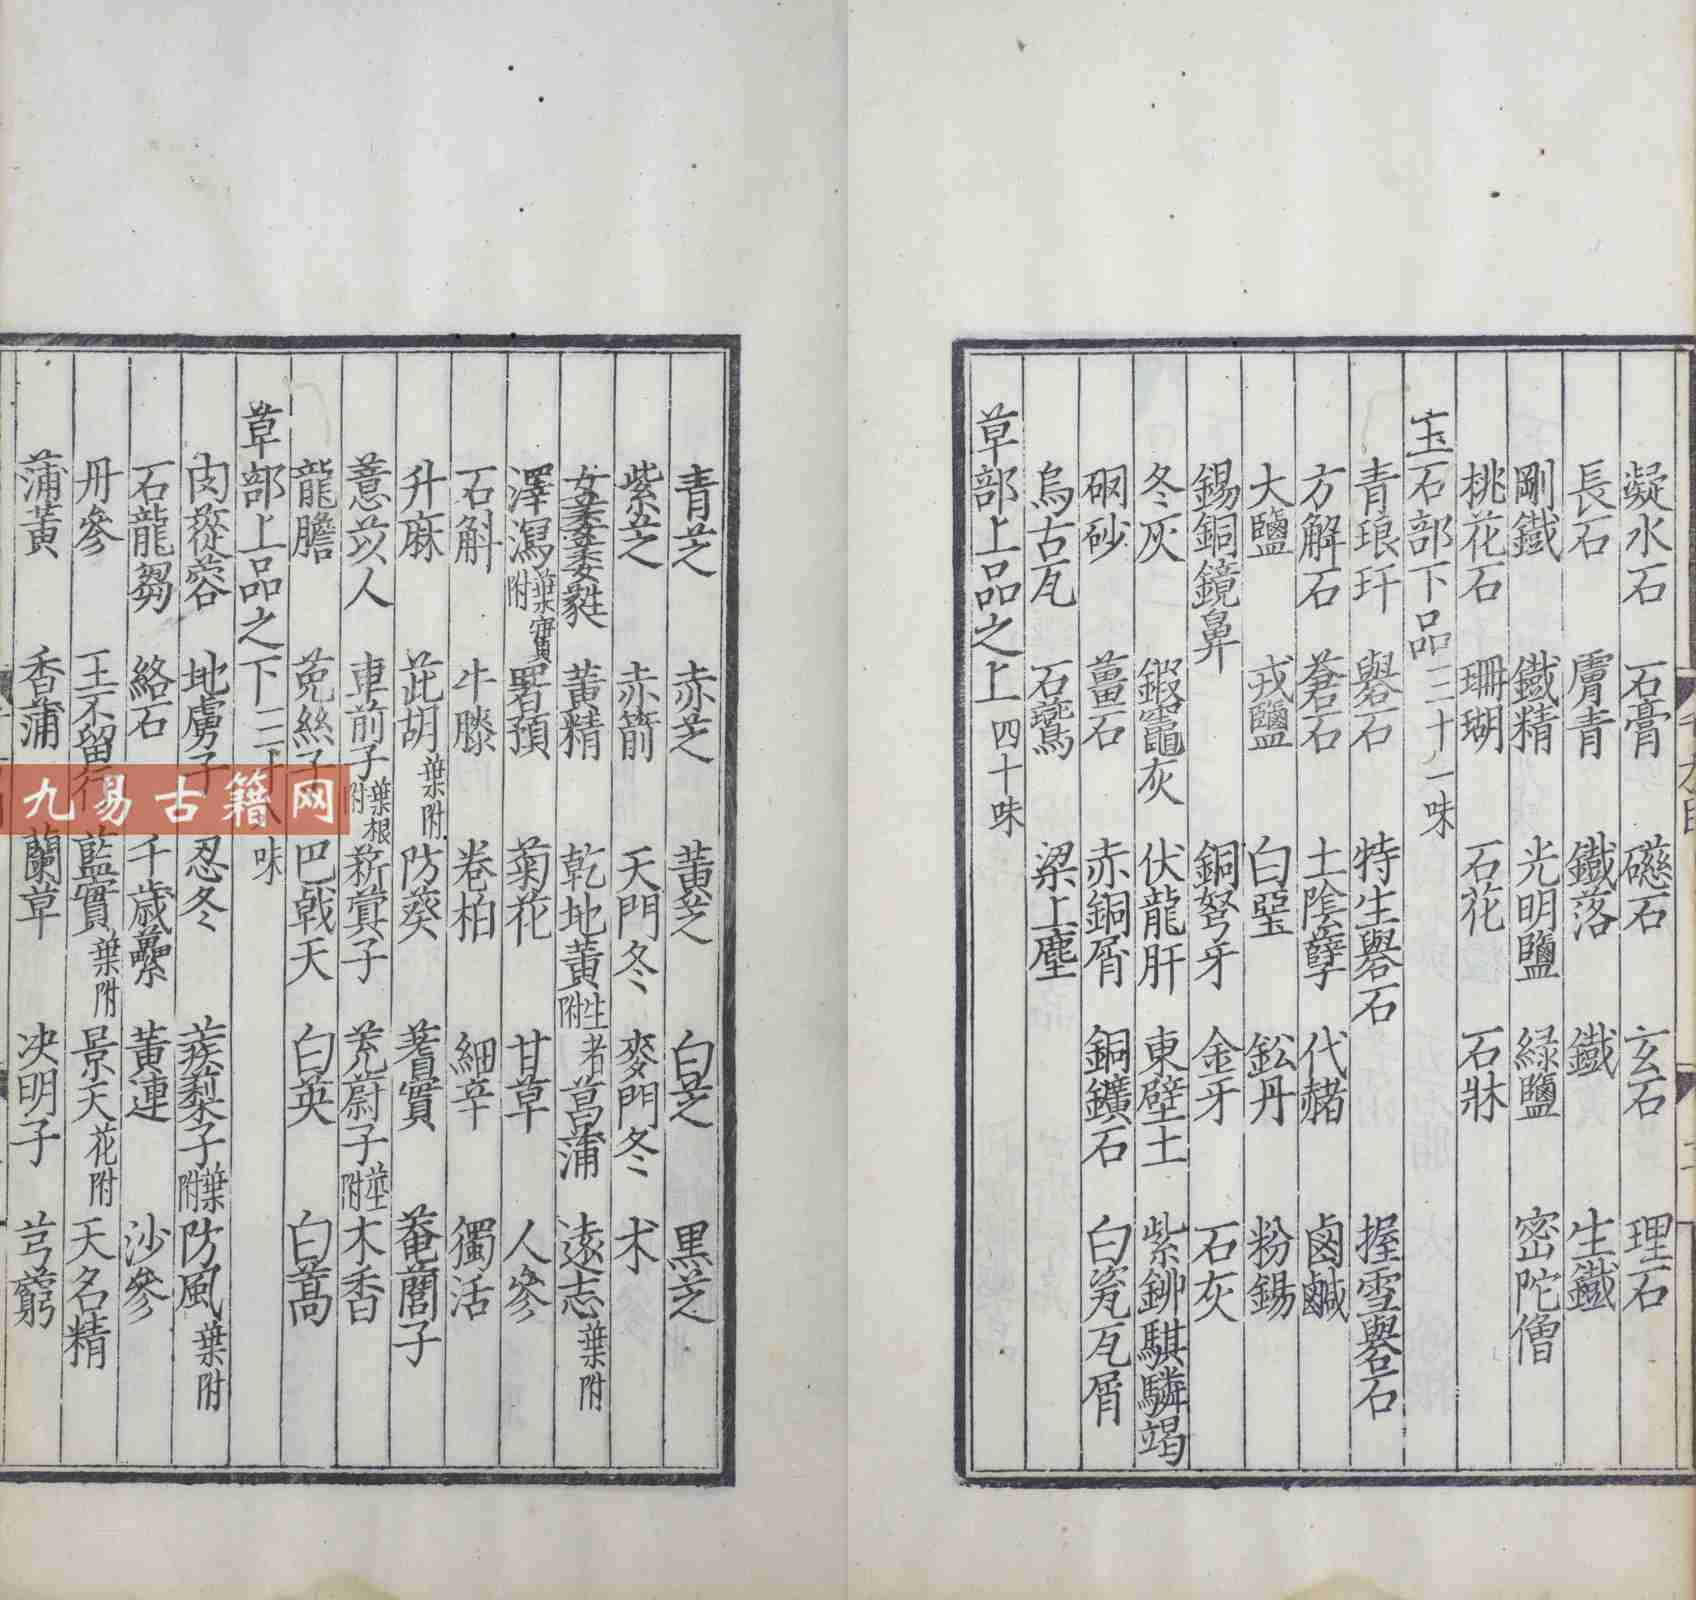 凝水石 石膏 礠石 玄石 理石
長石 膚青 鐵落 鐵 生鐵
剛鐵 鐵精 光明鹽 緑鹽 密陀僧
桃花石 珊瑚 石花 石牀
玉石部下品三十一味
青琅玕 礜石 特生礜石 握雪礜石
方解石 蒼石 土陰孽 代赭 鹵鹹
大鹽 戎鹽 白堊 鈆丹 粉錫
錫銅鏡鼻 銅弩牙 金牙 石灰
冬灰 鍜竈灰 伏龍肝 東壁土 紫鉚騏驎竭
硇砂 薑石 赤銅屑 銅鑛石 白瓷瓦屑
烏古瓦 石鷰 梁上塵
草部上品之上四十味
青芝 赤芝 黃芝 白芝 黑芝
紫芝 赤箭 天門冬 麥門冬 术
女萎萎蕤 黃精 乾地黃生者附 菖蒲 遠志葉附
澤瀉葉實附 署預 菊花 甘草 人參
石斛 牛膝 卷柏 細辛 獨活
升麻 茈胡葉附 防葵 蓍實 菴䕡子
薏苡人 車前子葉根附 菥蓂子 茺蔚子莖附 木香
龍膽 菟絲子 巴戟天 白英 白蒿
草部上品之下三十味
肉蓯蓉 地膚子 忍冬 蒺䔧子葉附 防風葉附
石龍芻 絡石 千歲虆 黃連 沙參
丹參 王不留行 藍實葉附 景天花附 天名精
蒲黃 香蒲 蘭草 决明子 芎藭
九易古籍网